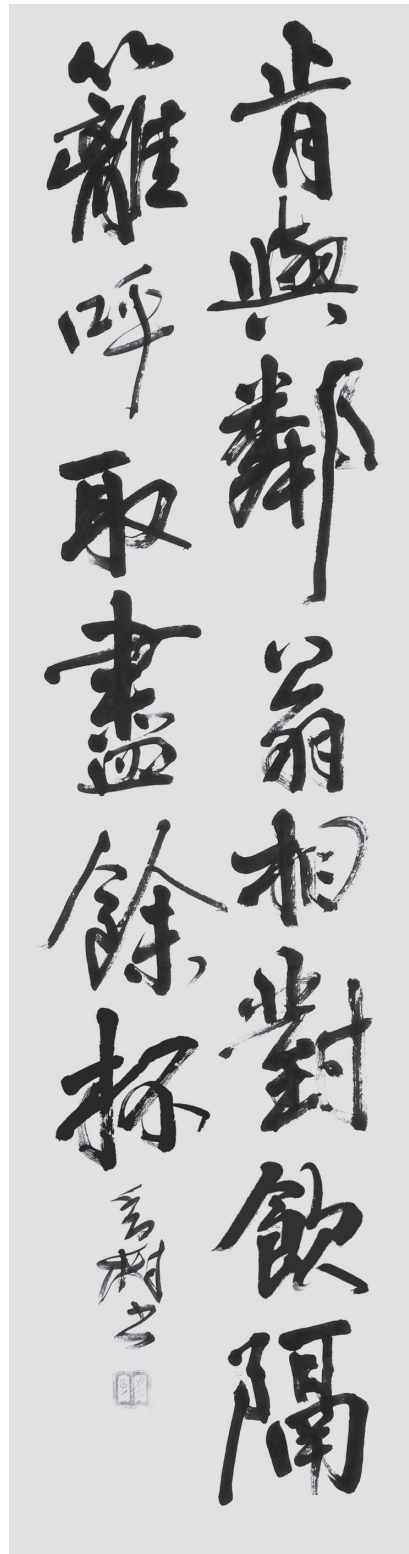 肯與鄰翁相對飲隔
籬呼取盡餘杯
樹書